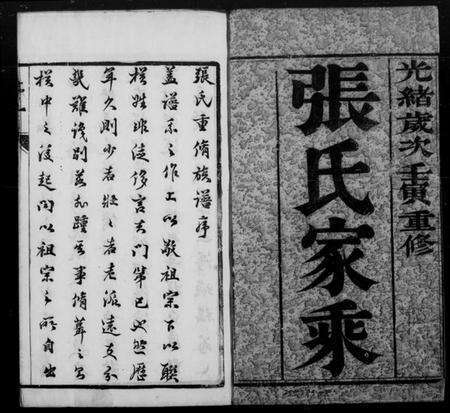 光緒歲次壬寅重修
張氏家乘
張氏重脩族譜序
蓋譜系之作上以敬祖宗下以聯
族姓非徒侈言夫門第已也然歷
年久則少者壯壯者老派遠支分
幾難識別若不踵事脩葺之
族中之後起問以祖宗之所自出